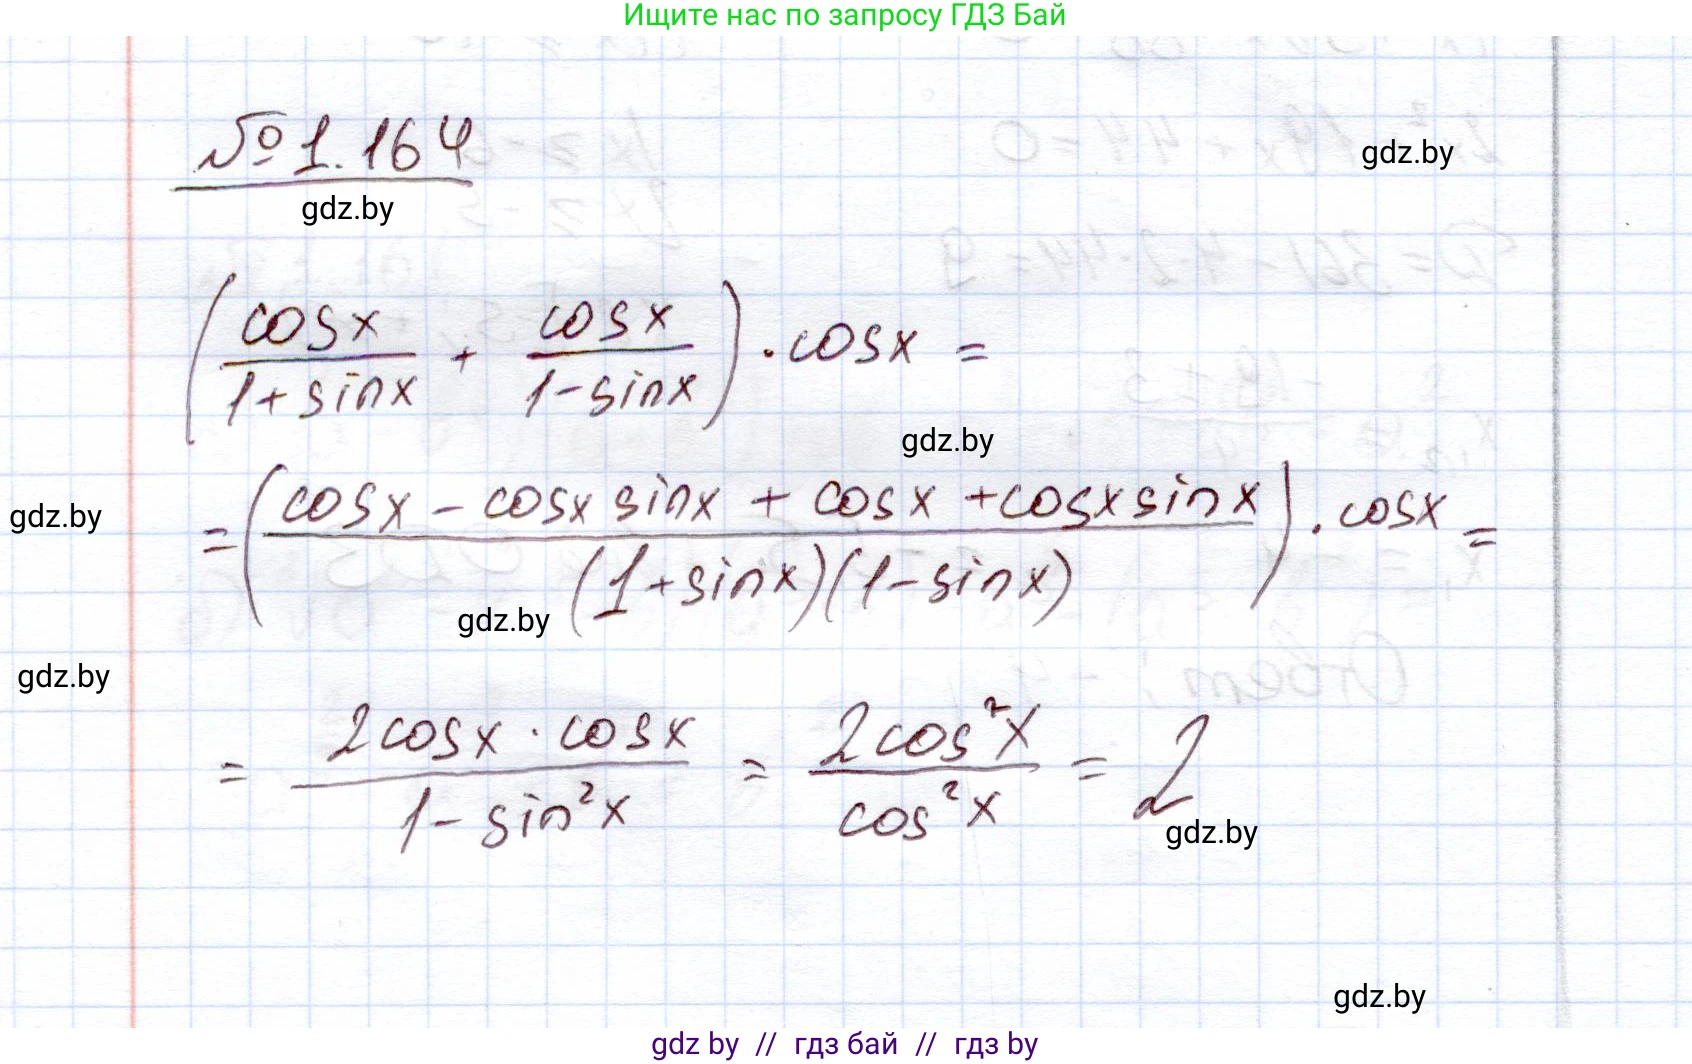 Ищите нас по запросу ГДЗ Бай
№1.164
gdz.by
gdz.by
(cosx/(1+sinx) + cosx/(1-sinx)) · cosx =
gdz.by
gdz.by
= ((cosx - cosx sinx + cosx + cosx sinx)/((1+sinx)(1-sinx))) · cosx =
gdz.by
gdz.by
= (2cosx · cosx)/(1-sin²x) = (2cos²x)/(cos²x) = 2
gdz.by
gdz.by
gdz by // гдз бай // гдз by